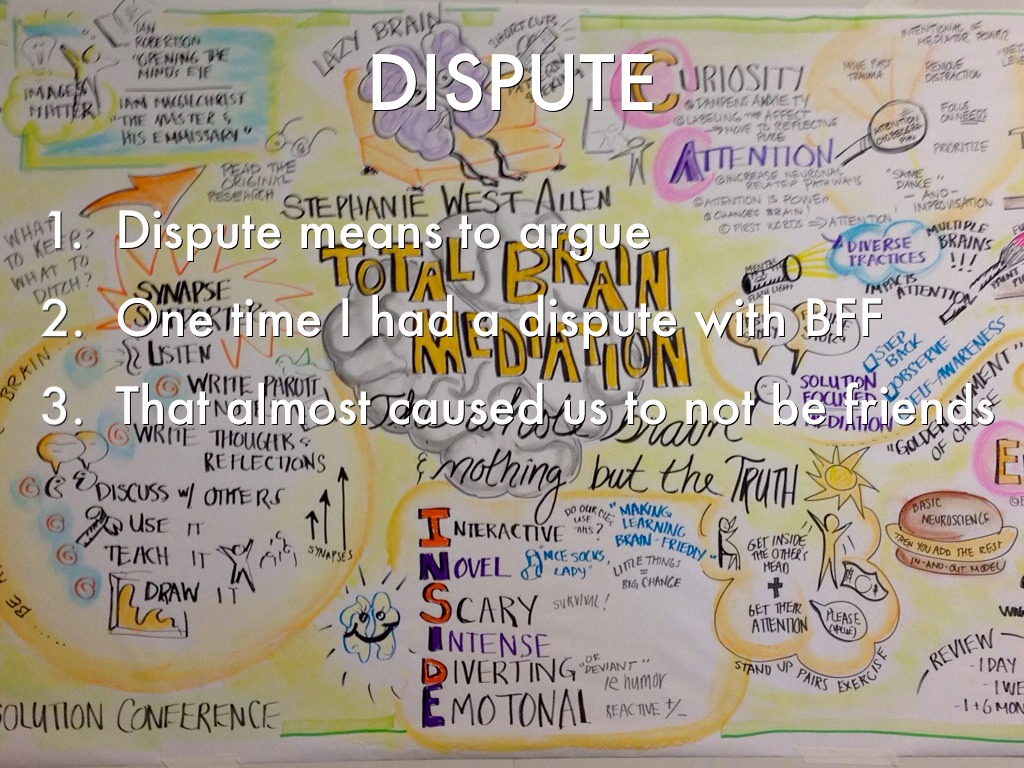 DISPUTE
1. Dispute means to argue
2. One time I had a dispute with BFF
3. That almost caused us to not be friends
IAN
ROBERTSON
"OPENING THE
MINDS EYE"
IMAGES
MATTER
IAIN MCGILCHRIST
"THE MASTER &
HIS EMMISSARY"
READ THE
ORIGINAL
RESEARCH
LAZY BRAIN
SHORTCUTS
STEPHANIE WEST ALLEN
TOTAL BRAIN
MEDIATION
brain
& nothing but the TRUTH
WHAT
TO KEEP?
WHAT TO
DITCH?
SYNAPSE
BRAIN
LISTEN
WRITE
WRITE THOUGHTS &
REFLECTIONS
DISCUSS W/ OTHERS
USE IT
TEACH IT
DRAW IT
SYNAPSES
BE
SOLUTION CONFERENCE
CURIOSITY
DAMPENS ANXIETY
LABELING THE AFFECT
MOVE TO REFLECTIVE
PLACE
ATTENTION
INCREASE NEURONAL
RELATED PATHWAYS
ATTENTION IS POWER
CHANGES BRAIN
FIRST WORDS ATTENTION
INTENTIONAL OF
MEDIATOR POWER?
MOVE PAST
TRAUMA
REMOVE
DISTRACTION
FOCUS
ON NEEDS
PRIORITIZE
"SAME
DANCE"
-AND-
IMPROVISATION
MENTAL
FLASH LIGHT
DIVERSE
PRACTICES
MULTIPLE
BRAINS
!!!
IMPACTS
ATTENTION
STEP
BACK
OBSERVE
SELF-AWARENESS
SOLUTION
FOCUSED
MEDIATION
"GOLDEN
OF
INTERACTIVE
DO OUR
USE
THIS?
"MAKING
LEARNING
BRAIN-FRIEDLY"
NOVEL
"NICE SOCKS,
LADY"
LITTLE THINGS
=
BIG CHANGE
SCARY
SURVIVAL!
INTENSE
DIVERTING "OR
DEVIANT"
re humor
EMOTONAL
REACTIVE +/-
GET INSIDE
THE OTHER'S
HEAD
+
GET THEIR
ATTENTION
PLEASE
(VALUE)
STAND UP PAIRS EXERCISE
BASIC
NEUROSCIENCE
THEN YOU ADD THE REST
IN-AND-OUT MODEL
REVIEW
-1 DAY